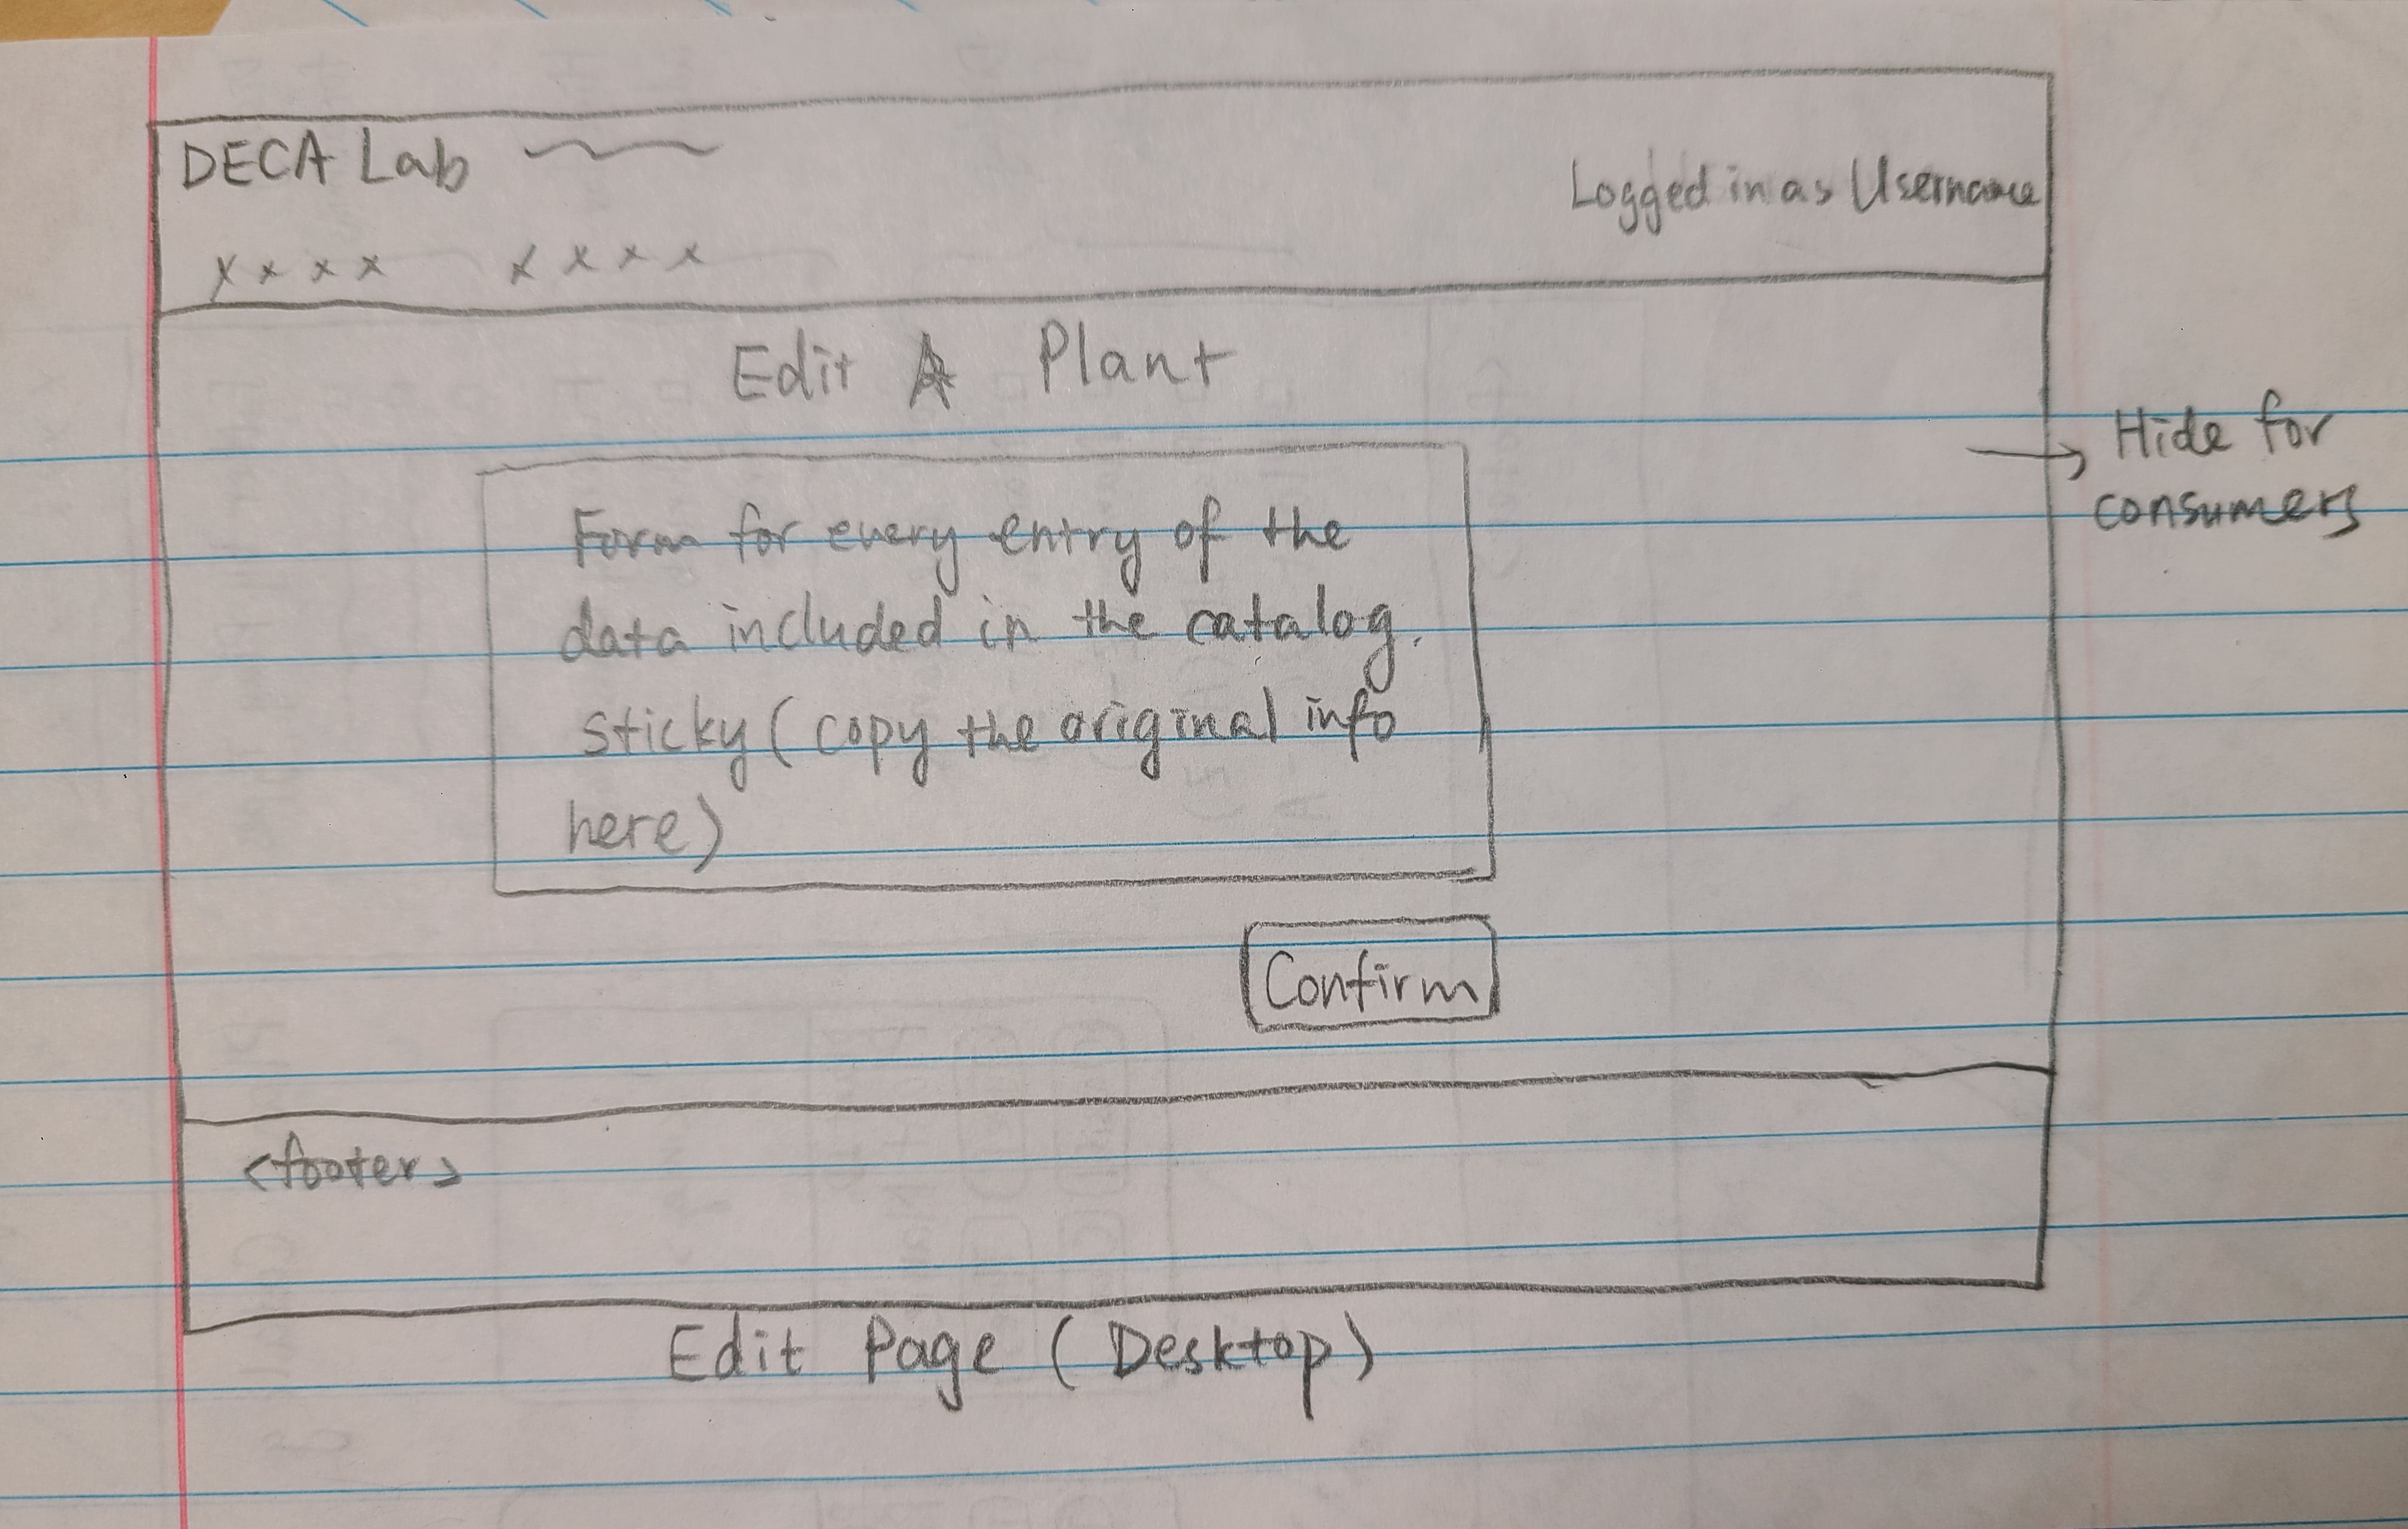 DECA Lab
Logged in as Username
xxxx xxxx
Edit A Plant
Hide for
consumers
Form for every entry of the
data included in the catalog.
sticky (copy the original info
here)
Confirm
<footer>
Edit Page (Desktop)